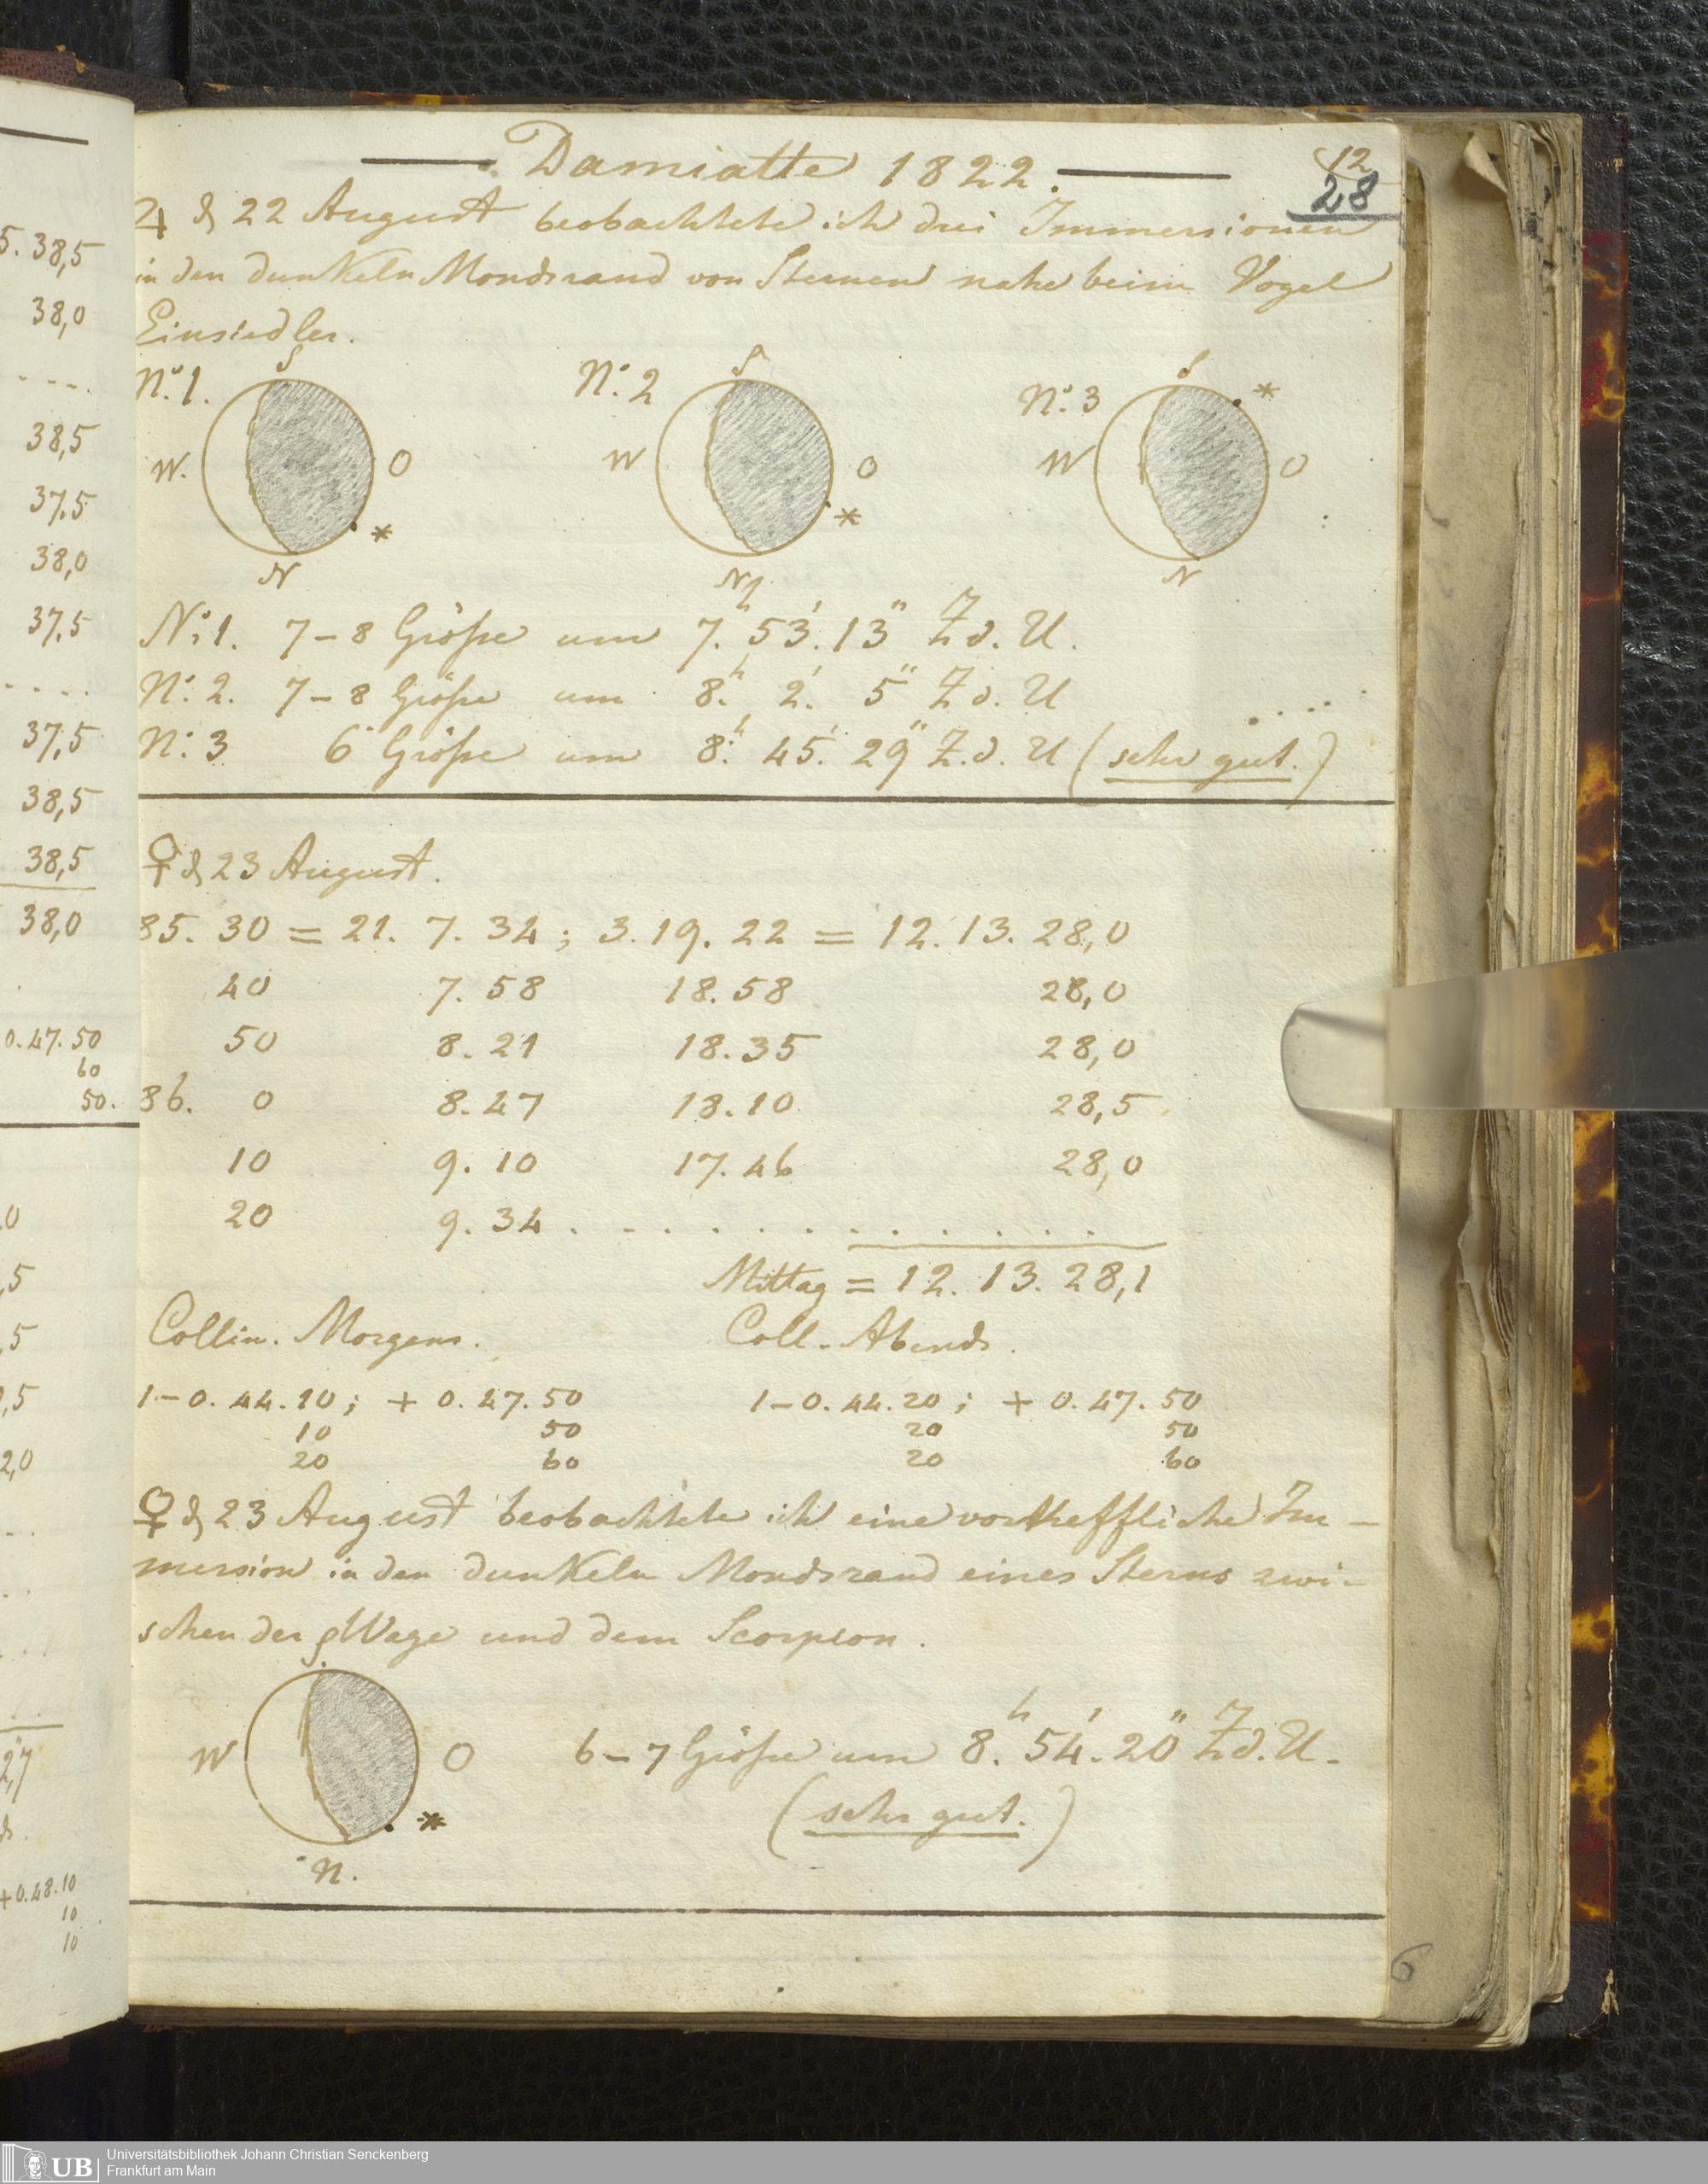 5. 38,5
38,0
- - - .
38,5
37,5
38,0
37,5
. . . .
37,5
38,5
38,5
38,0
0. 47. 50
60
50.
,0
,5
,5
,5
2,0
2,"7
+ 0. 48. 10
10
10
Damiatte 1822.
12
28
♃ d 22 August beobachtete ich drei Immersionen
in den dunkeln Mondsrand von Sternen nahe beim Vogel
Einsiedler.
N:o 1. S W. O N *
N:o 2 S W O N *
N:o 3 S W O N *
N:o 1. 7 – 8 Größe um 7.h 53.' 13" Z. d. U.
N:o 2. 7 – 8 Größe um 8.h 2.' 5" Z. d. U
N:o 3 6 Größe um 8.h 45.' 29" Z. d. U (sehr gut.)
♀ d 23 August.
85. 30 = 21. 7. 34 ; 3. 19. 22 = 12. 13. 28,0
40 7. 58 18. 58 28,0
50 8. 21 18. 35 28,0
86. 0 8. 47 18. 10 28,5
10 9. 10 17. 46 28,0
20 9. 34 . . . . . . . . . . . .
Mittag = 12. 13. 28,1
Collim. Morgens. Coll. Abends.
1 – 0. 44. 10 ; + 0. 47. 50 1 – 0. 44. 20 ; + 0. 47. 50
10 50 20 50
20 60 20 60
♀ d 23 August beobachtete ich eine vortreffliche Im –
mersion in den dunkeln Mondsrand eines Sterns zwi –
schen der Wage und dem Scorpion.
S. W O N. *
6 – 7 Größe um 8.h 54.' 20" Z. d. U.
(sehr gut.)
6
UB Universitätsbibliothek Johann Christian Senckenberg
Frankfurt am Main